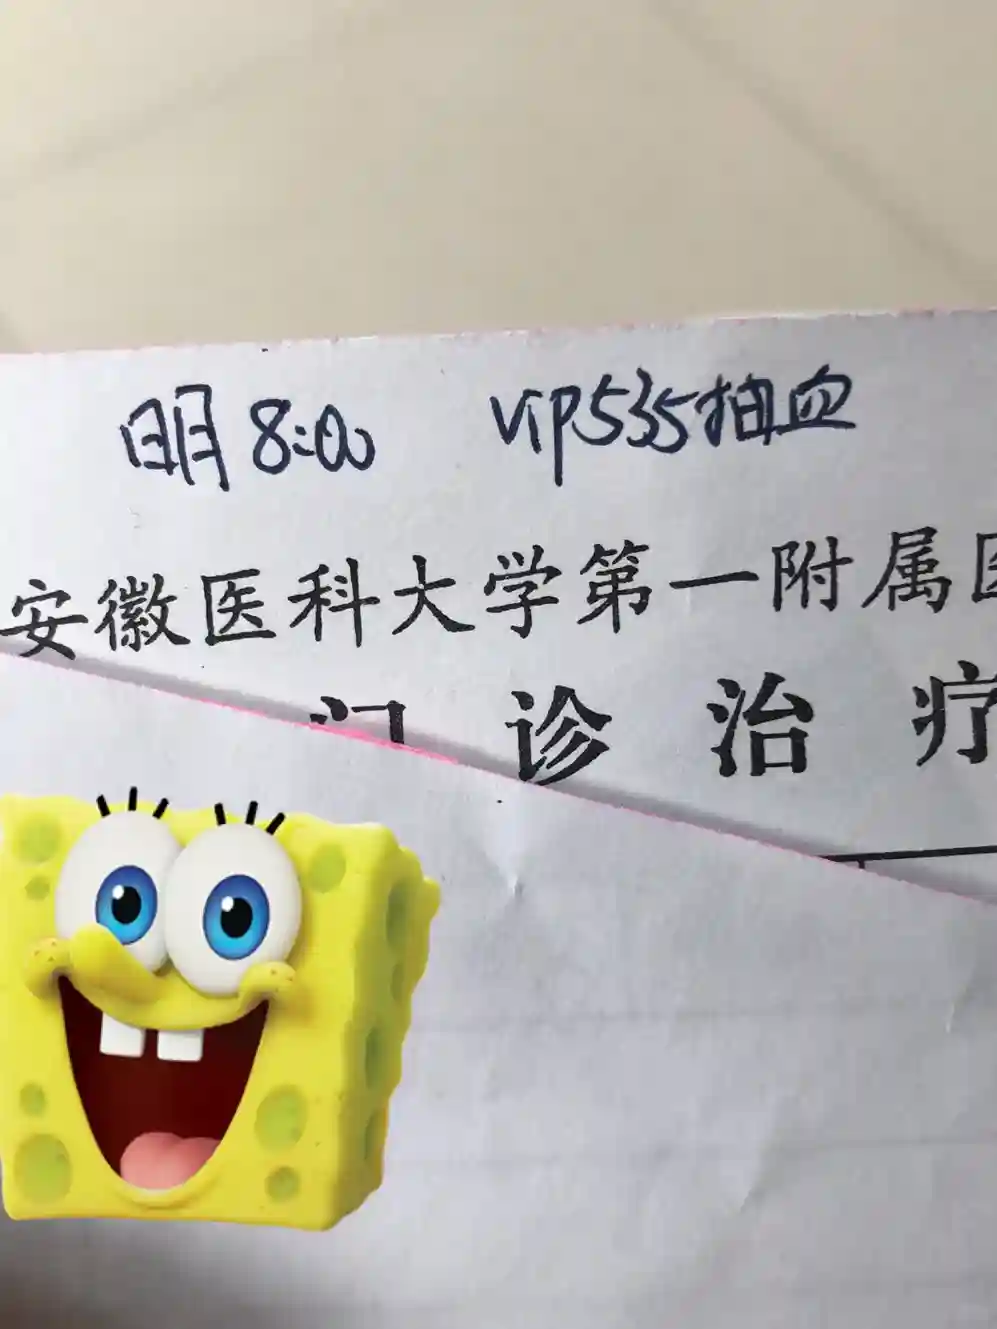 明8:00 VIP535抽血
安徽医科大学第一附属医
门诊治疗